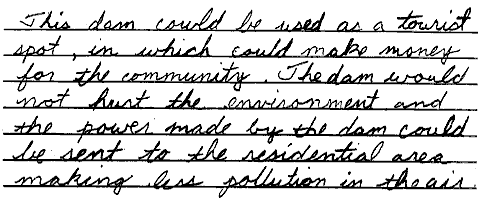 This dam could be used as a tourist
spot, in which could make money
for the community. The dam would
not hurt the environment and
the power made by the dam could
be sent to the residential area
making less pollution in the air.